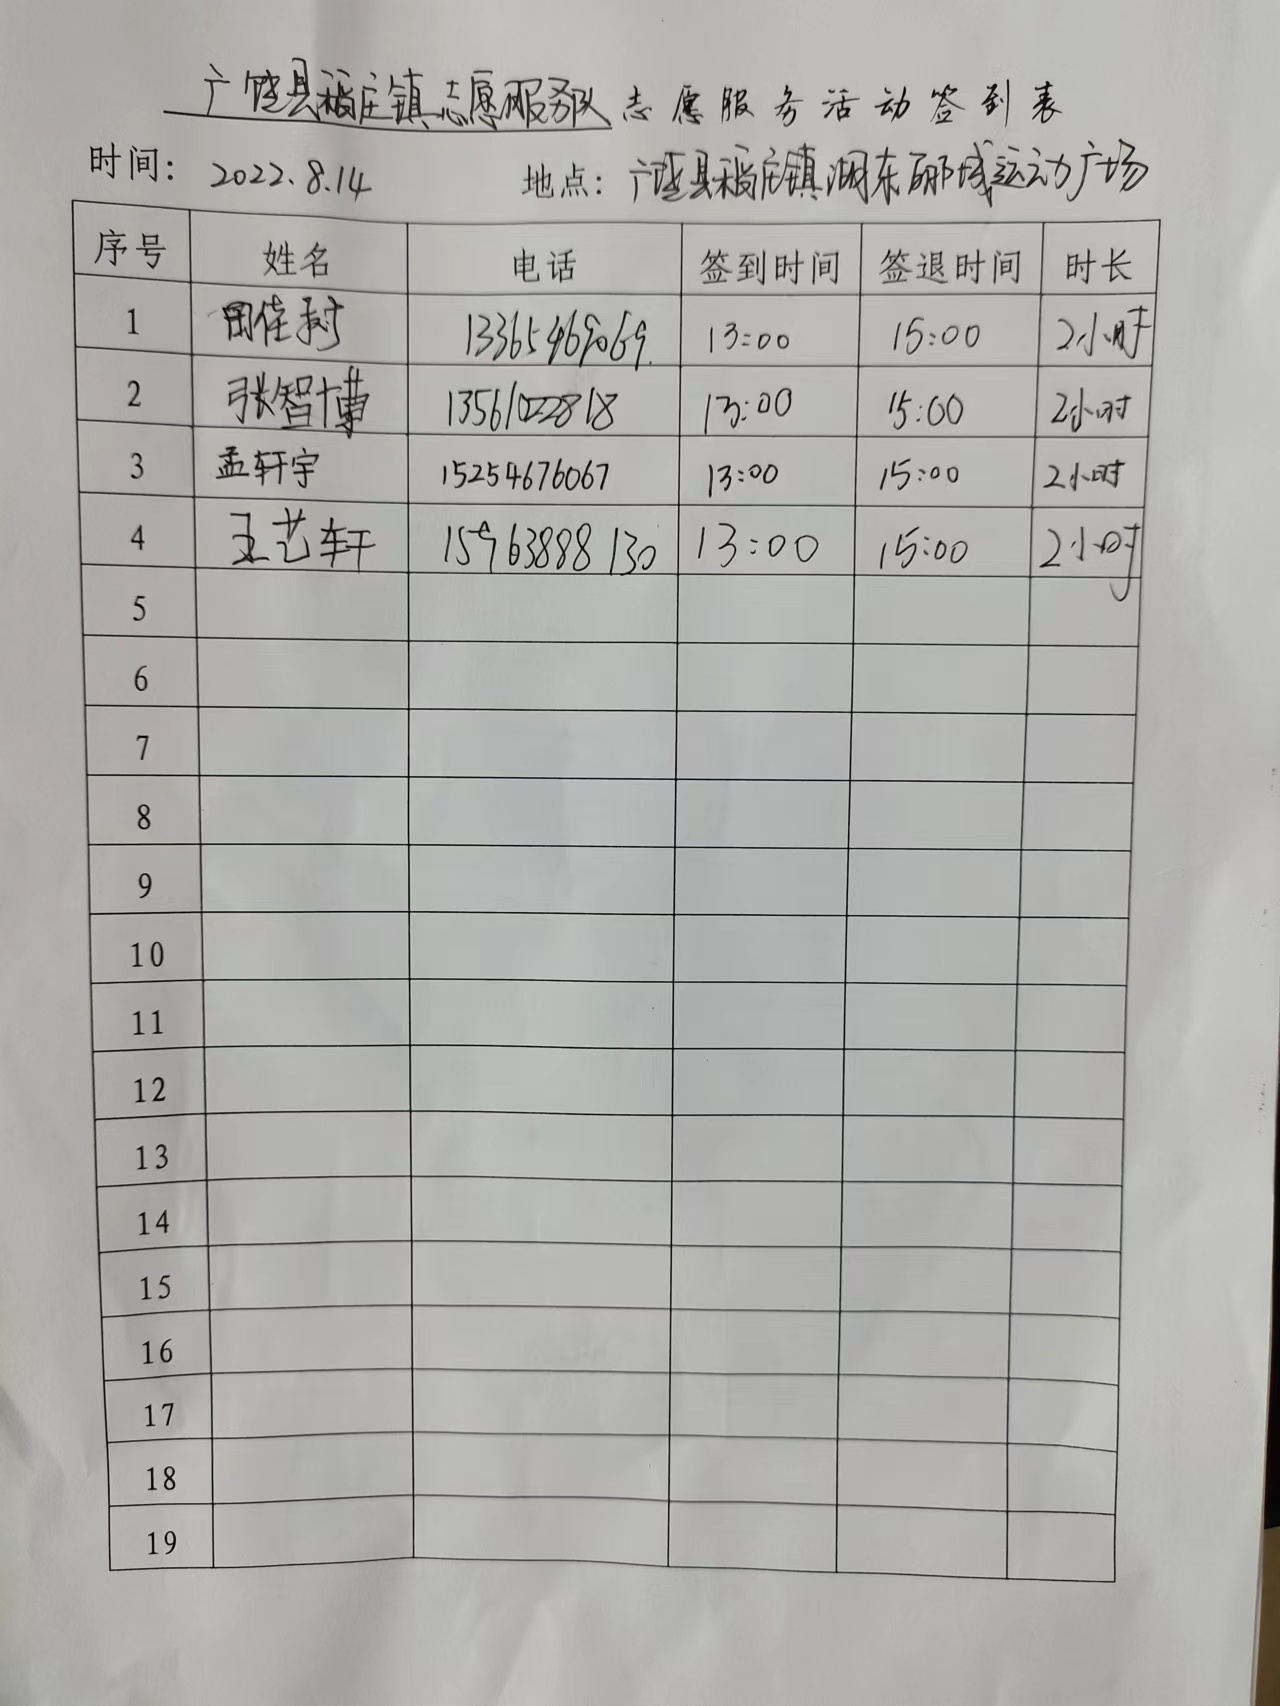 广饶县稻庄镇志愿服务队志愿服务活动签到表
时间：2022.8.14 地点：广饶县稻庄镇湖东郦城运动广场
序号 姓名 电话 签到时间 签退时间 时长
1 田佳树 13365469069 13:00 15:00 2小时
2 张智博 13561022818 13:00 15:00 2小时
3 孟轩宇 15254676067 13:00 15:00 2小时
4 王艺轩 15963888130 13:00 15:00 2小时
5
6
7
8
9
10
11
12
13
14
15
16
17
18
19